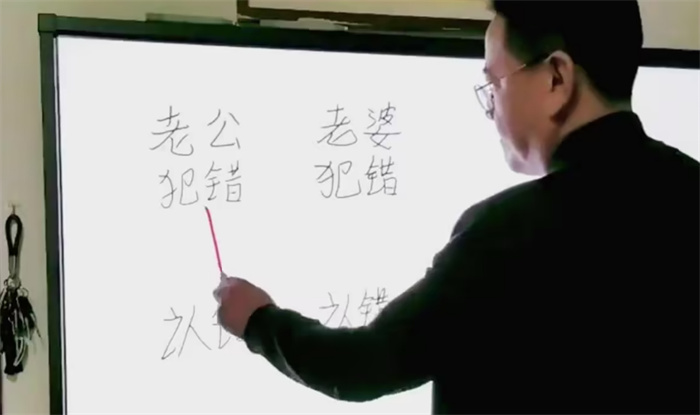 老公 老婆
犯错 犯错
认错 认错